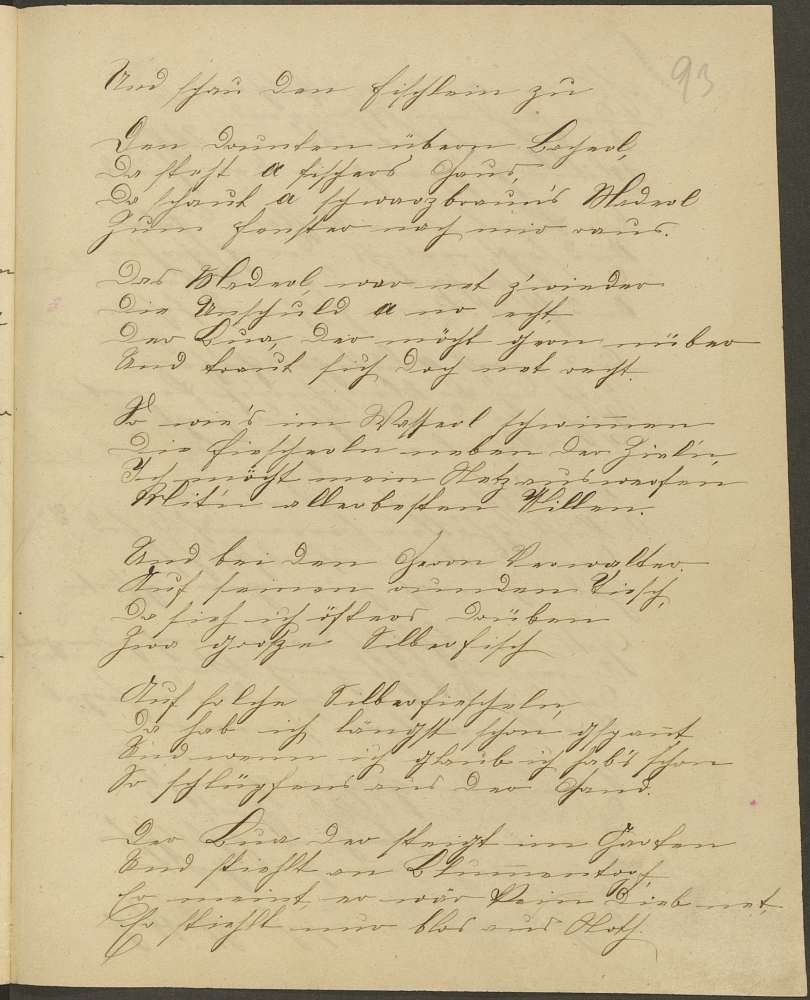 93
Und schau den Fischlein zu
Den drunten übern Bacherl,
Da steht a Fischers Haus,
Da schaut a schwarzbraun's Maderl
Zum Fenster nach mir raus.
Das Maderl, war net z'wieder
Die Unschuld a no echt
Der Bua, der möcht gern nüber
Und traut sich doch net recht.
So wie's im Wasserl schwimmen
Die Fischerln neben der
Ich möcht mein Netz auswerfen
Mit'n allerbesten Willen.
Und bei den Herrn Verwalter
Auf seinen runden Tisch,
Da sieh ich öfters drüben
Zwa große Silberfisch
Auf solche Silberfischeln,
Da hab ich längst schon gspannt
Und wenn ich glaub ich hab's schon
So schlüpfens aus der Hand.
Der Bua der steigt im Garten
Und stiehlt an Blumentopf,
Er meint, er wär kein Dieb net,
Er stiehlt nur blos aus Noth.